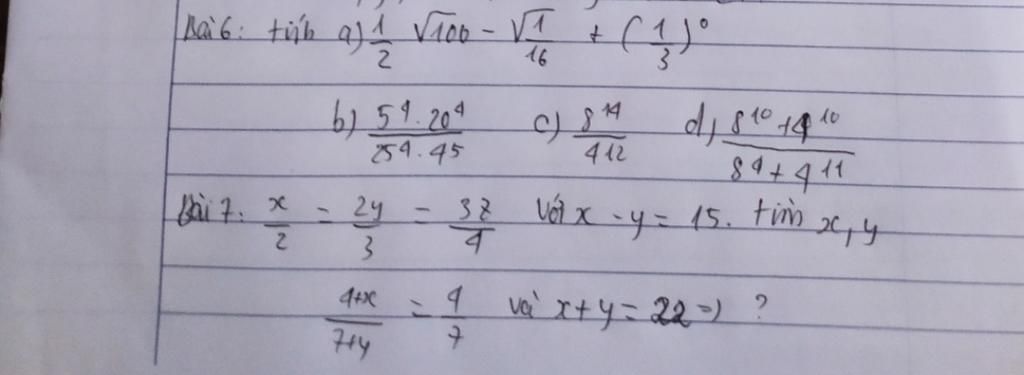 Bài 6: tính a) \frac{1}{2} \sqrt{100} - \sqrt{\frac{1}{16}} + (\frac{1}{3})^0
b) \frac{5^4 \cdot 20^4}{25^4 \cdot 4^5} c) \frac{8^{14}}{4^{12}} d, \frac{8^{10} + 4^{10}}{8^4 + 4^{11}}
Bài 7: \frac{x}{2} = \frac{2y}{3} = \frac{3z}{4} với x - y = 15. tìm x, y
\frac{4+x}{7+y} = \frac{4}{7} và x + y = 22 => ?